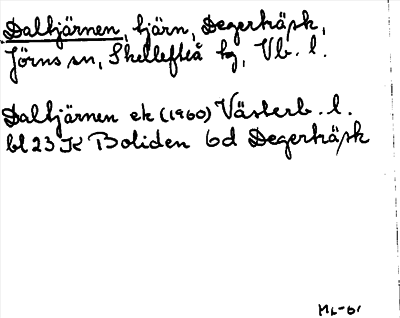 Daltjärnen, tjärn, Degerträsk,
Jörns sn, Skellefteå kg, Vb. l.
Daltjärnen ek (1960) Västerb. l.
bl 23 K Boliden 6d Degerträsk